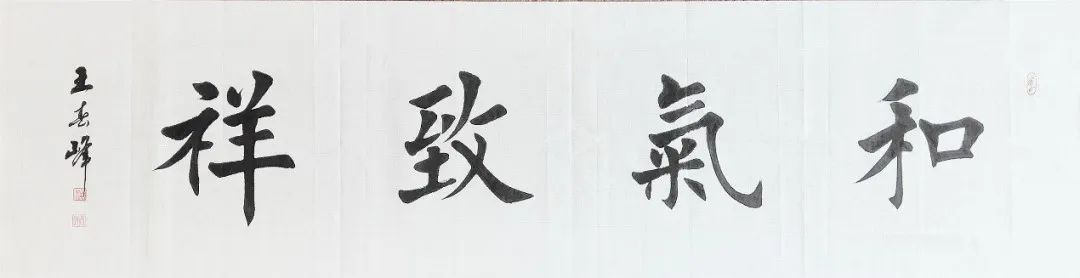 和氣致祥
王春峰